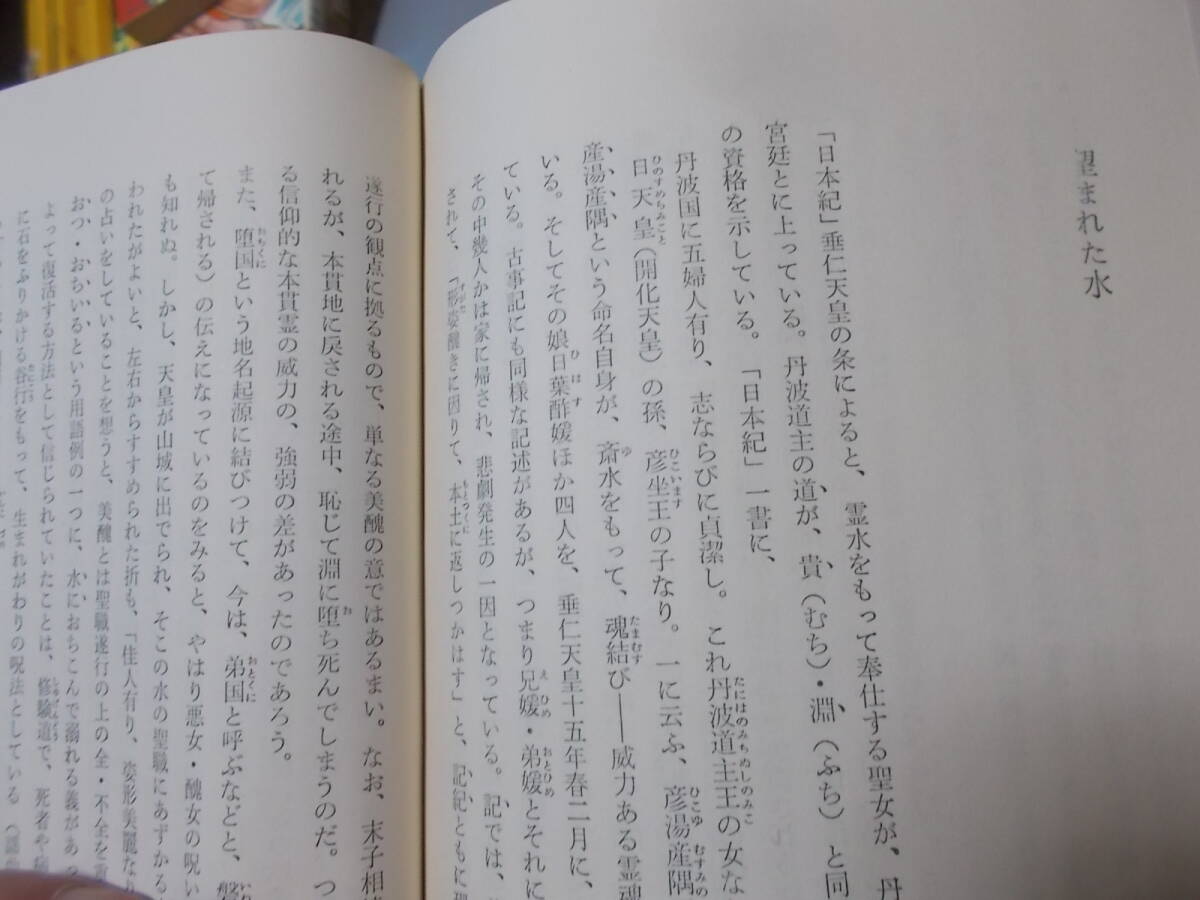 望まれた水
「日本紀」垂仁天皇の条によると、霊水をもって奉仕する聖女が、丹
宮廷とに上っている。丹波道主の道が、貴（むち）・淵（ふち）と同
の資格を示している。「日本紀」一書に、
丹波国に五婦人有り、志ならびに貞潔し。これ丹波道主王の女な
日天皇（開化天皇）の孫、彦坐王の子なり。一に云ふ、彦湯産隅
産湯産隅という命名自身が、斎水をもって、魂結び――威力ある霊魂
いる。そしてその娘日葉酢媛ほか四人を、垂仁天皇十五年春二月に、
ている。古事記にも同様な記述があるが、つまり兄媛・弟媛とそれに
その中幾人かは家に帰され、悲劇発生の一因となっている。記では、
されて、「形姿醜きに因りて、本土に返しつかはす」と、記紀ともに
遂行の観点に拠るもので、単なる美醜の意ではあるまい。なお、末子相
れるが、本貫地に戻される途中、恥じて淵に堕ち死んでしまうのだ。つ
る信仰的な本貫霊の威力の、強弱の差があったのであろう。
また、堕国という地名起源に結びつけて、今は、弟国と呼ぶなどと、
て帰される）の伝えになっているのをみると、やはり悪女・醜女の呪い
も知れぬ。しかし、天皇が山城に出でられ、そこの水の聖職にあずかる
われたがよいと、左右からすすめられた折も、「佳人有り、姿形美麗なり
の占いをしていることを想うと、美醜とは聖職遂行の上の全・不全を
おつ・おちいるという用語例の一つに、水におちこんで溺れる義があっ
よって復活する方法として信じられていたことは、修験道で、死者や
に石をふりかける谷行をもって、生まれがわりの呪法としている